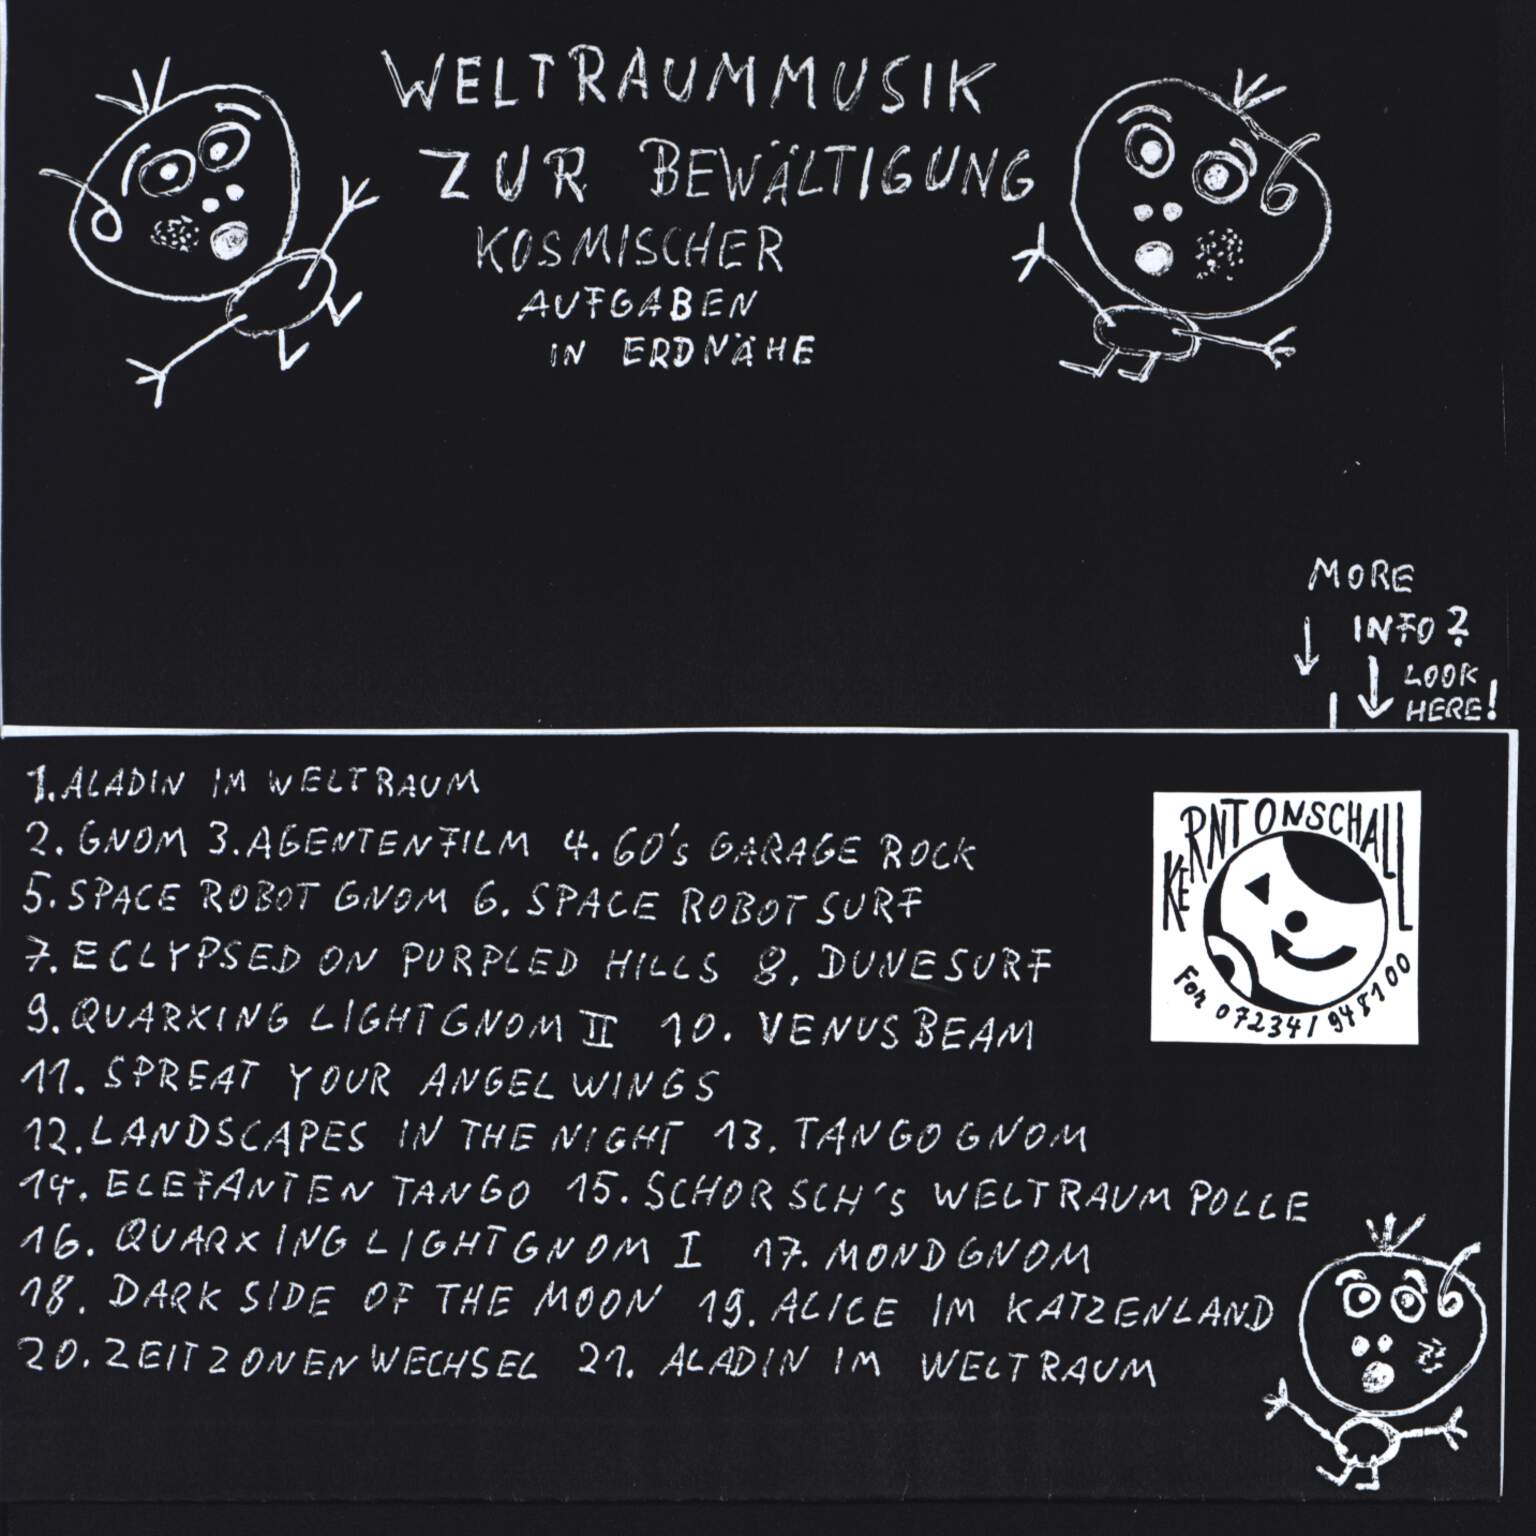 WELTRAUMMUSIK
ZUR BEWÄLTIGUNG
KOSMISCHER
AUFGABEN
IN ERDNÄHE
MORE
INFO?
LOOK
HERE!
1. ALADIN IM WELTRAUM
2. GNOM 3. AGENTENFILM 4. 60's GARAGE ROCK
5. SPACE ROBOT GNOM 6. SPACE ROBOT SURF
7. ECLYPSED ON PURPLED HILLS 8. DUNESURF
9. QUARXING LIGHTGNOM II 10. VENUSBEAM
11. SPREAT YOUR ANGELWINGS
12. LANDSCAPES IN THE NIGHT 13. TANGOGNOM
14. ELEFANTEN TANGO 15. SCHORSCH's WELTRAUMPOLLE
16. QUARXING LIGHTGNOM I 17. MONDGNOM
18. DARK SIDE OF THE MOON 19. ALICE IM KATZENLAND
20. ZEITZONENWECHSEL 21. ALADIN IM WELTRAUM
KERNTONSCHALL
Fon 07234/948100